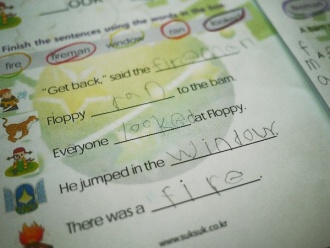 Finish the sentences using the words in the box.
fire fireman window ran looked
"Get back," said the fireman
Floppy ran to the barn.
Everyone looked at Floppy.
He jumped in the window.
There was a fire.
www.suksuk.co.kr